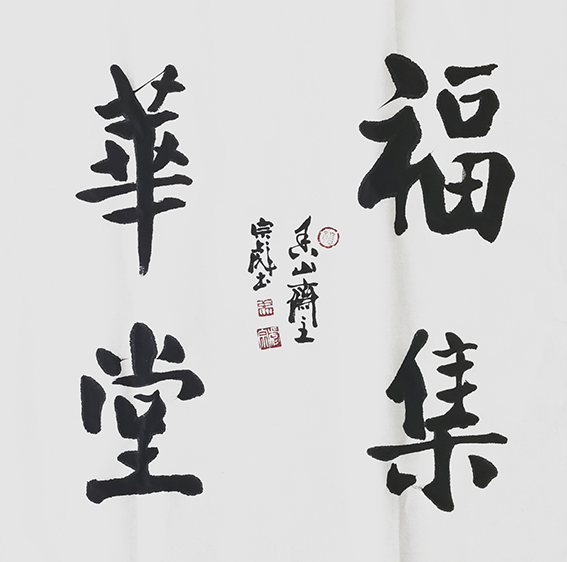 福集
華堂
香山齋主
宗彪书